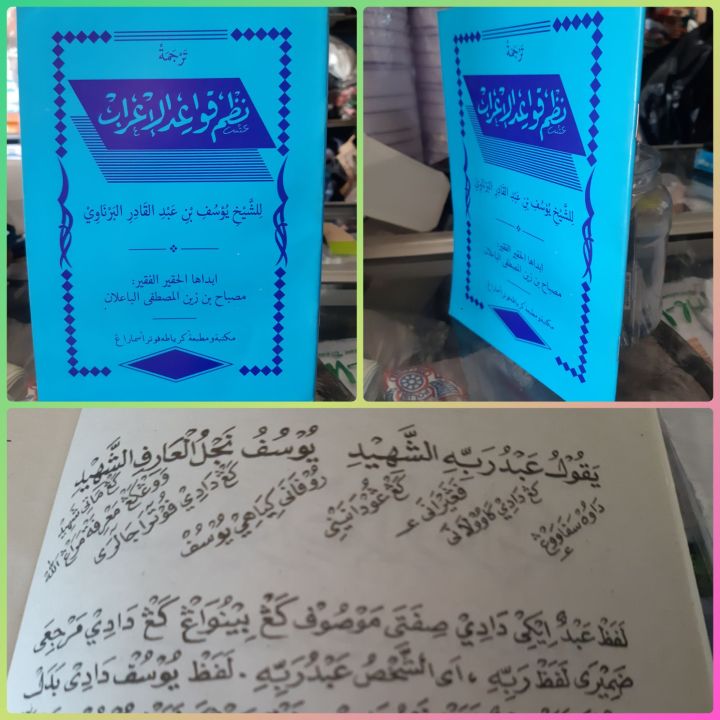 تَرْجَمَةُ
نظم قواعد الإعراب
لِلشَّيْخِ يُوْسُفِ بْنِ عَبْدِ القَادِرِ البَرْنَاوِيْ
ابداها الحقير الفقير:
مصباح بن زين المصطفى الباعلان
مكتبة ومطبعة كرياطه فوترا سماراڠ
تَرْجَمَةُ
نظم قواعد الإعراب
لِلشَّيْخِ يُوْسُفِ بْنِ عَبْدِ القَادِرِ البَرْنَاوِيْ
ابداها الحقير الفقير:
مصباح بن زين المصطفى الباعلان
مكتبة ومطبعة كرياطه فوترا سماراڠ
يَقُوْلُ عَبْدُ رَبِّهِ الشَّهِيْدِ يُوْسُفُ نَجْلُ الْعَارِفِ الشَّهِيْدِ
كڠ دادي كاوولاني
فڠيراني
روفاني كياهي يوسف
كڠ دادي فوترا
معرفة مراڠ الله
لَفَظْ عَبْدُ اِيْكِيْ دَادِيْ صِفَتَيْ مَوْصُوْف كَڠْ بِيْنُوَاڠْ كَڠْ دَادِيْ مَرْجِعَيْ
ضَمِيْرَيْ لَفَظْ رَبِّهِ ، اَيِ الشَّخْصُ عَبْدُ رَبِّهِ . لَفَظْ يُوْسُفْ دَادِيْ بَدَلْ